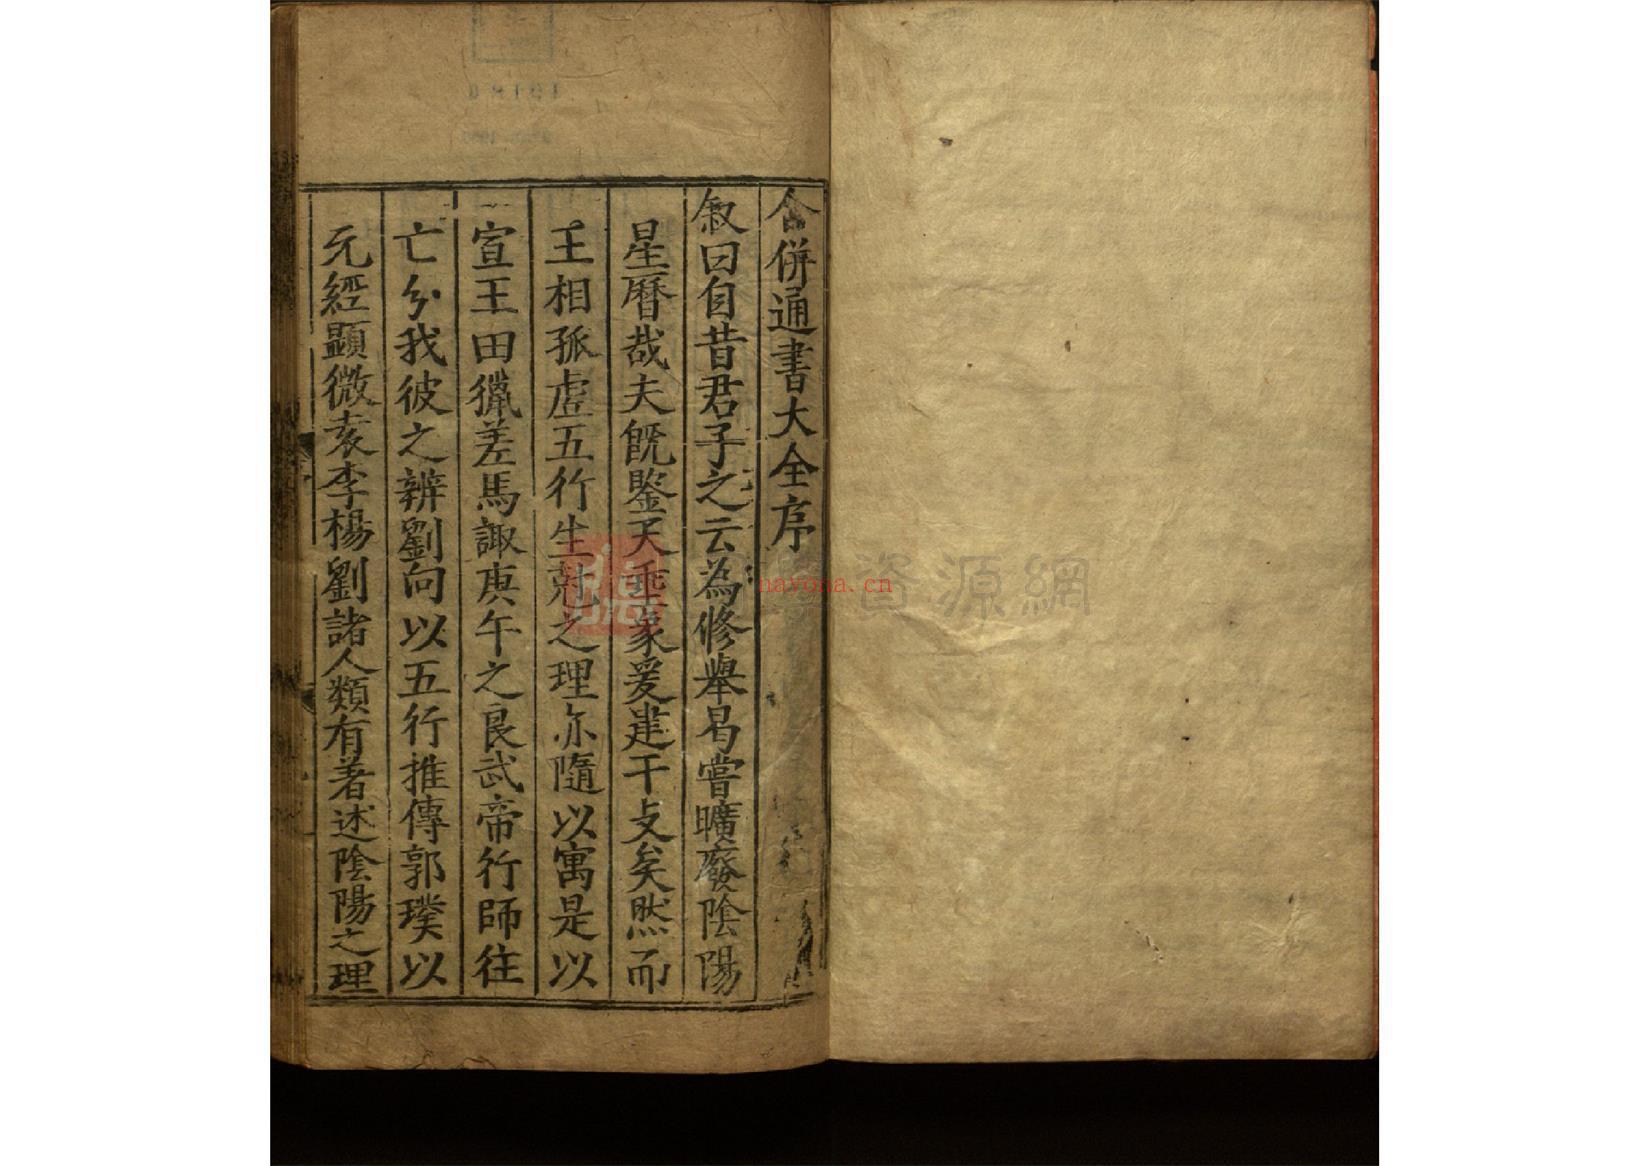 合併通書大全序
叙曰自昔君子之云為修舉曷嘗曠廢陰陽
星曆哉夫既鑒天垂象爰建干支矣然而
王相孤虛五行生尅之理亦隨以寓是以
宣王田獵差馬諏庚午之良武帝行師往
亡分我彼之辨劉向以五行推傳郭璞以
元經顯微袁李楊劉諸人類有著述陰陽之理
資源網
nayona.cn